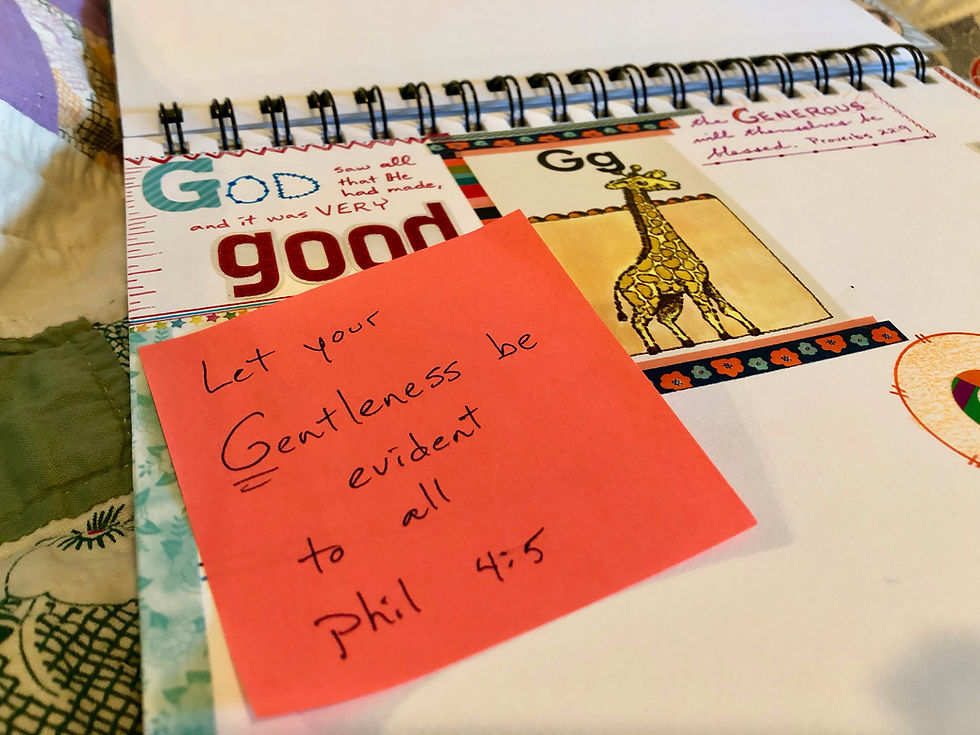 GOD saw all
that He
had made,
and it was VERY
good
Gg
the GENEROUS
will themselves be
blessed. Proverbs 22:9
Let your
Gentleness be
evident
to all
Phil 4:5